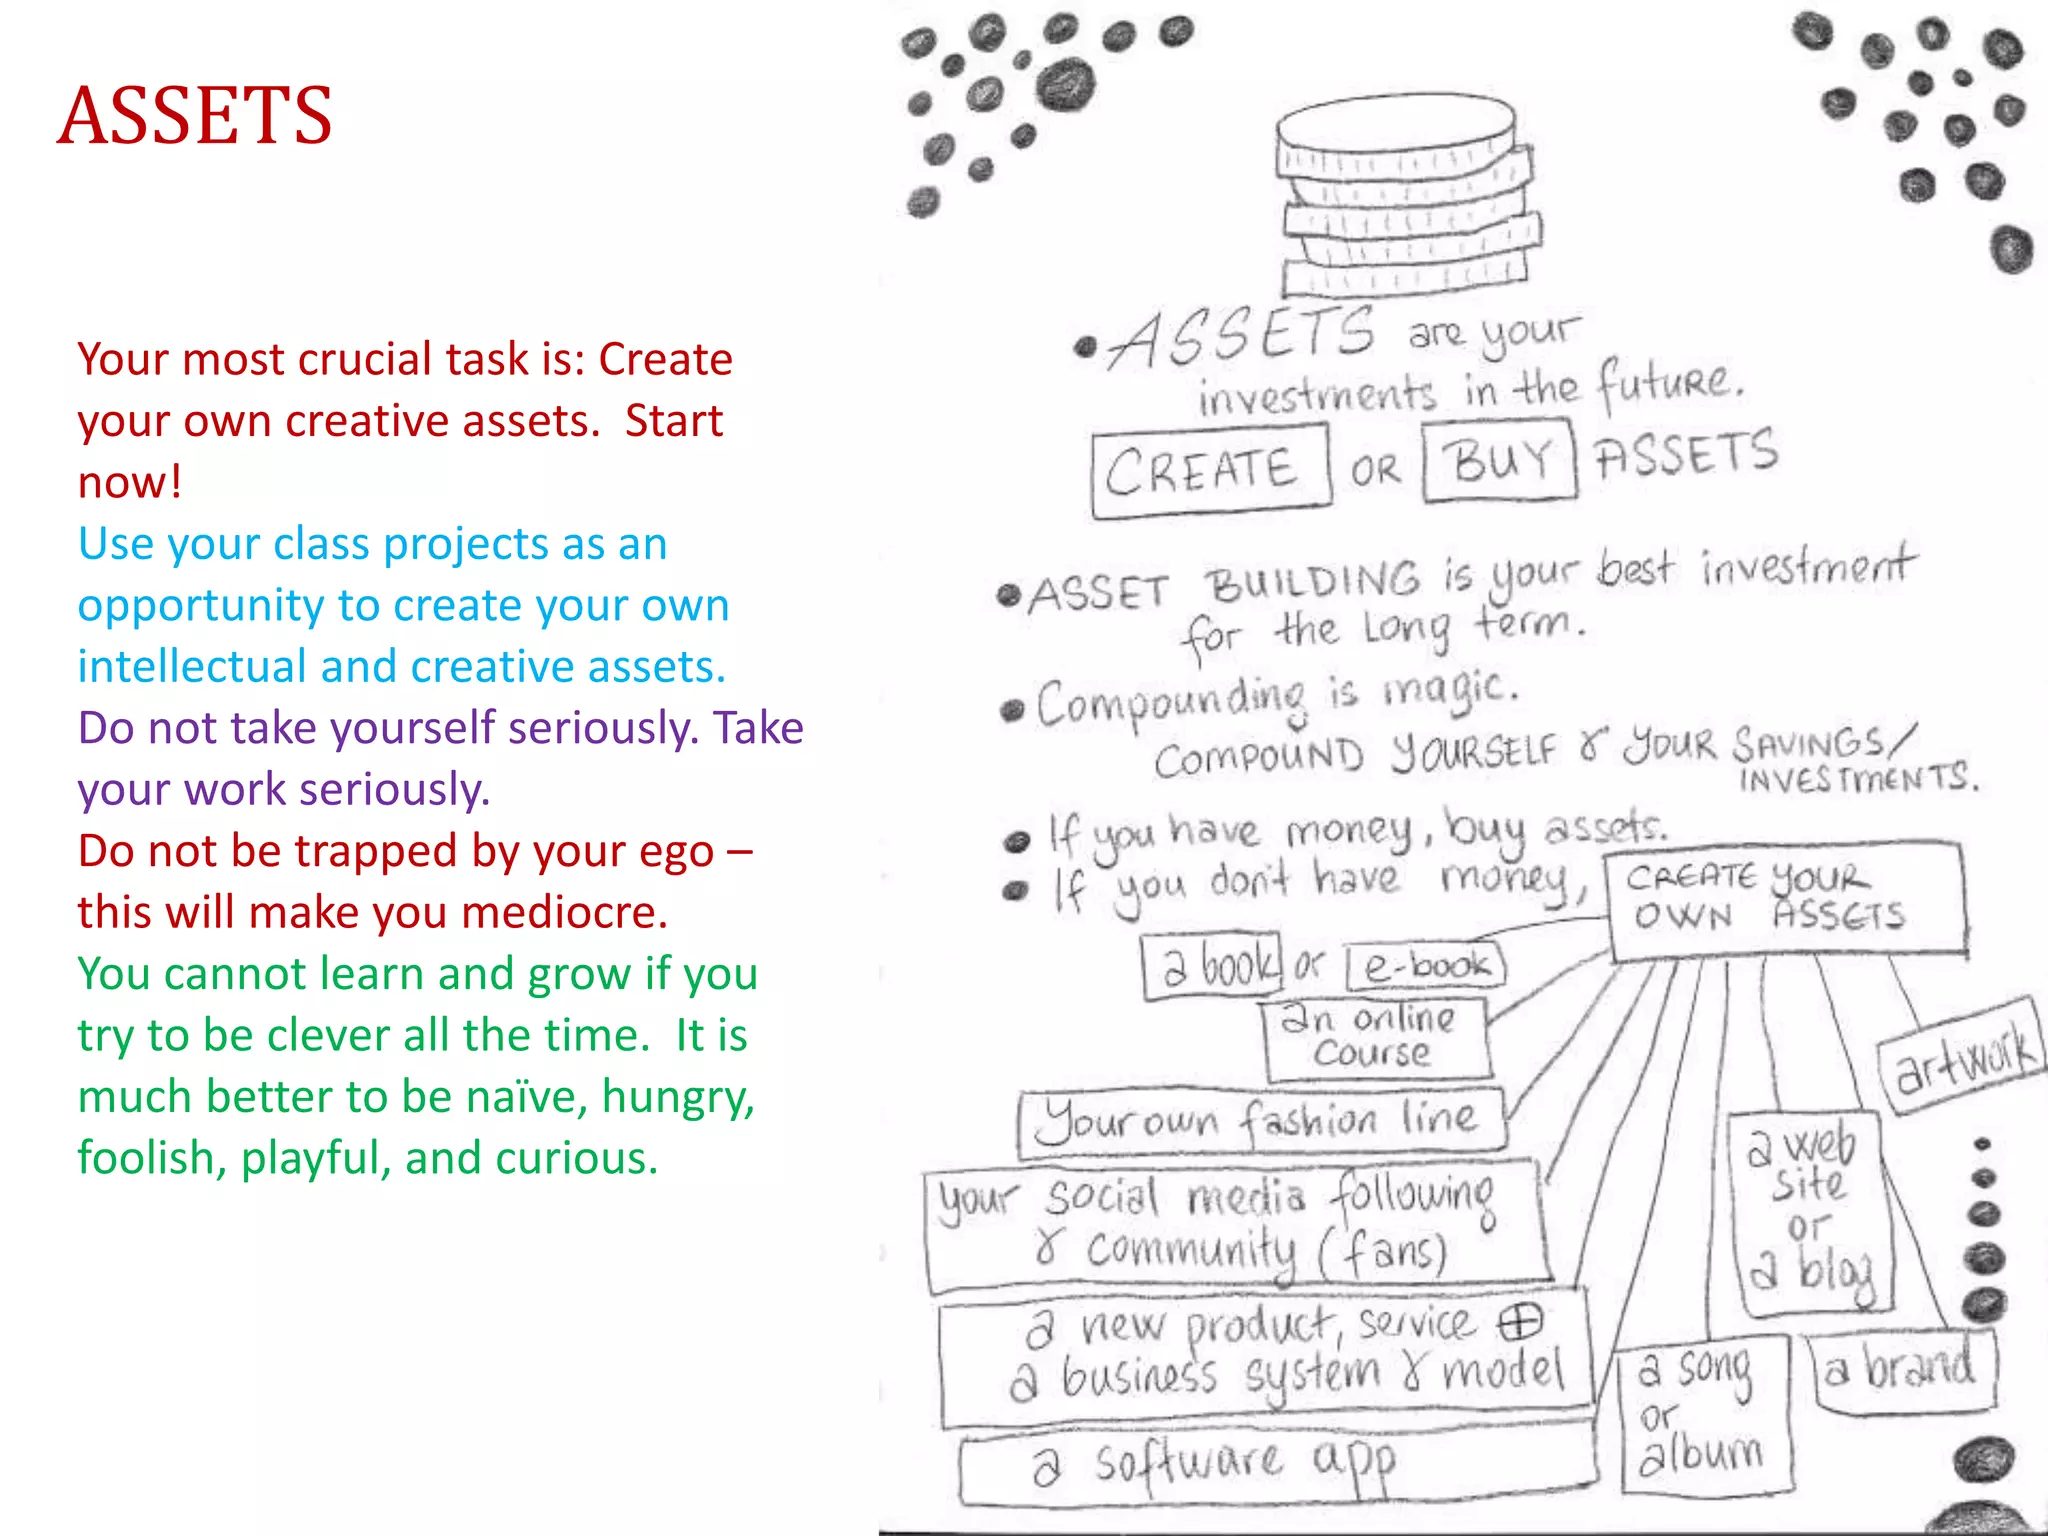 ASSETS
Your most crucial task is: Create
your own creative assets.  Start
now!
Use your class projects as an
opportunity to create your own
intellectual and creative assets.
Do not take yourself seriously. Take
your work seriously.
Do not be trapped by your ego –
this will make you mediocre.
You cannot learn and grow if you
try to be clever all the time.  It is
much better to be naïve, hungry,
foolish, playful, and curious.
• ASSETS are your
investments in the future.
CREATE OR BUY ASSETS
• ASSET BUILDING is your best investment
for the Long term.
• Compounding is magic.
COMPOUND YOURSELF & YOUR SAVINGS/
INVESTMENTS.
• If you have money, buy assets.
• If you don't have money, CREATE YOUR
OWN ASSETS
a book or e-book
an online
course
artwork
Your own fashion line
your social media following
& community (fans)
a web
site
or
a blog
a new product, service ⊕
a business system & model
a song
or
album
a brand
a software app